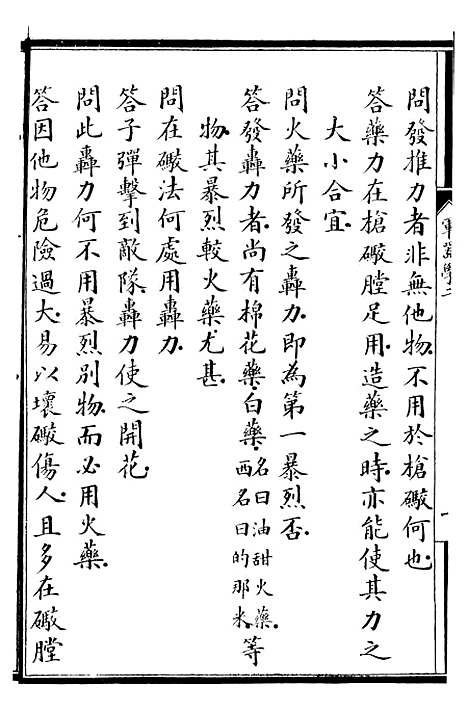 問發推力者非無他物不用於槍礮何也
答藥力在槍礮膛足用造藥之時亦能使其力之
大小合宜
問火藥所發之轟力即為第一暴烈否
答發轟力者尚有棉花藥白藥名曰油甜火藥西名曰的那米等
物其暴烈較火藥尤甚
問在礮法何處用轟力
答子彈擊到敵隊轟力使之開花
問此轟力何不用暴烈別物而必用火藥
答因他物危險過大易以壞礮傷人且多在礮膛